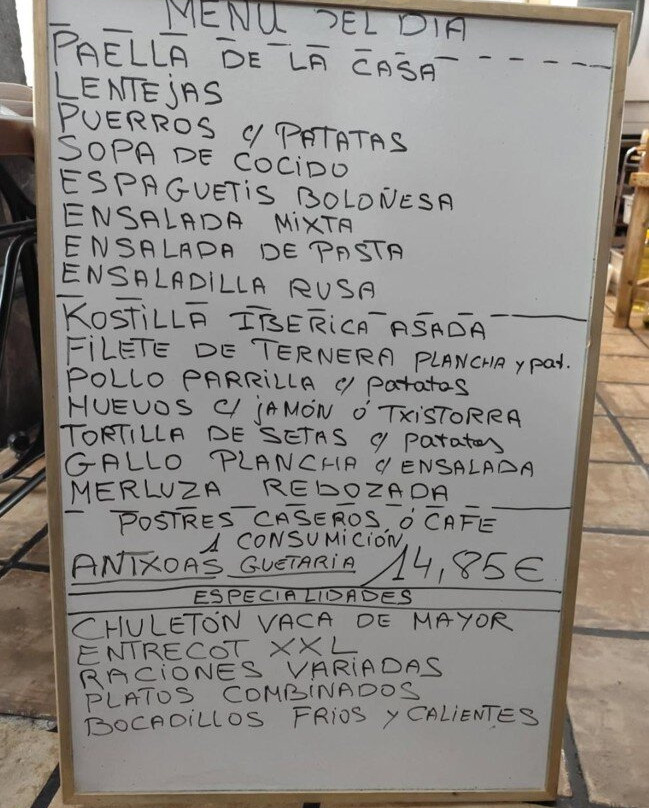 MENU DEL DIA
PAELLA DE LA CASA
LENTEJAS
PUERROS c/ PATATAS
SOPA DE COCIDO
ESPAGUETIS BOLOÑESA
ENSALADA MIXTA
ENSALADA DE PASTA
ENSALADILLA RUSA
KOSTILLA IBERICA ASADA
FILETE DE TERNERA PLANCHA y pat.
POLLO PARRILLA c/ patatas
HUEVOS c/ JAMÓN ó TXISTORRA
TORTILLA DE SETAS c/ patatas
GALLO PLANCHA c/ ENSALADA
MERLUZA REBOZADA
POSTRES CASEROS ó CAFE
1 CONSUMICIÓN
ANTXOAS GUETARIA 14,85€
ESPECIALIDADES
CHULETÓN VACA DE MAYOR
ENTRECOT XXL
RACIONES VARIADAS
PLATOS COMBINADOS
BOCADILLOS FRIOS y CALIENTES